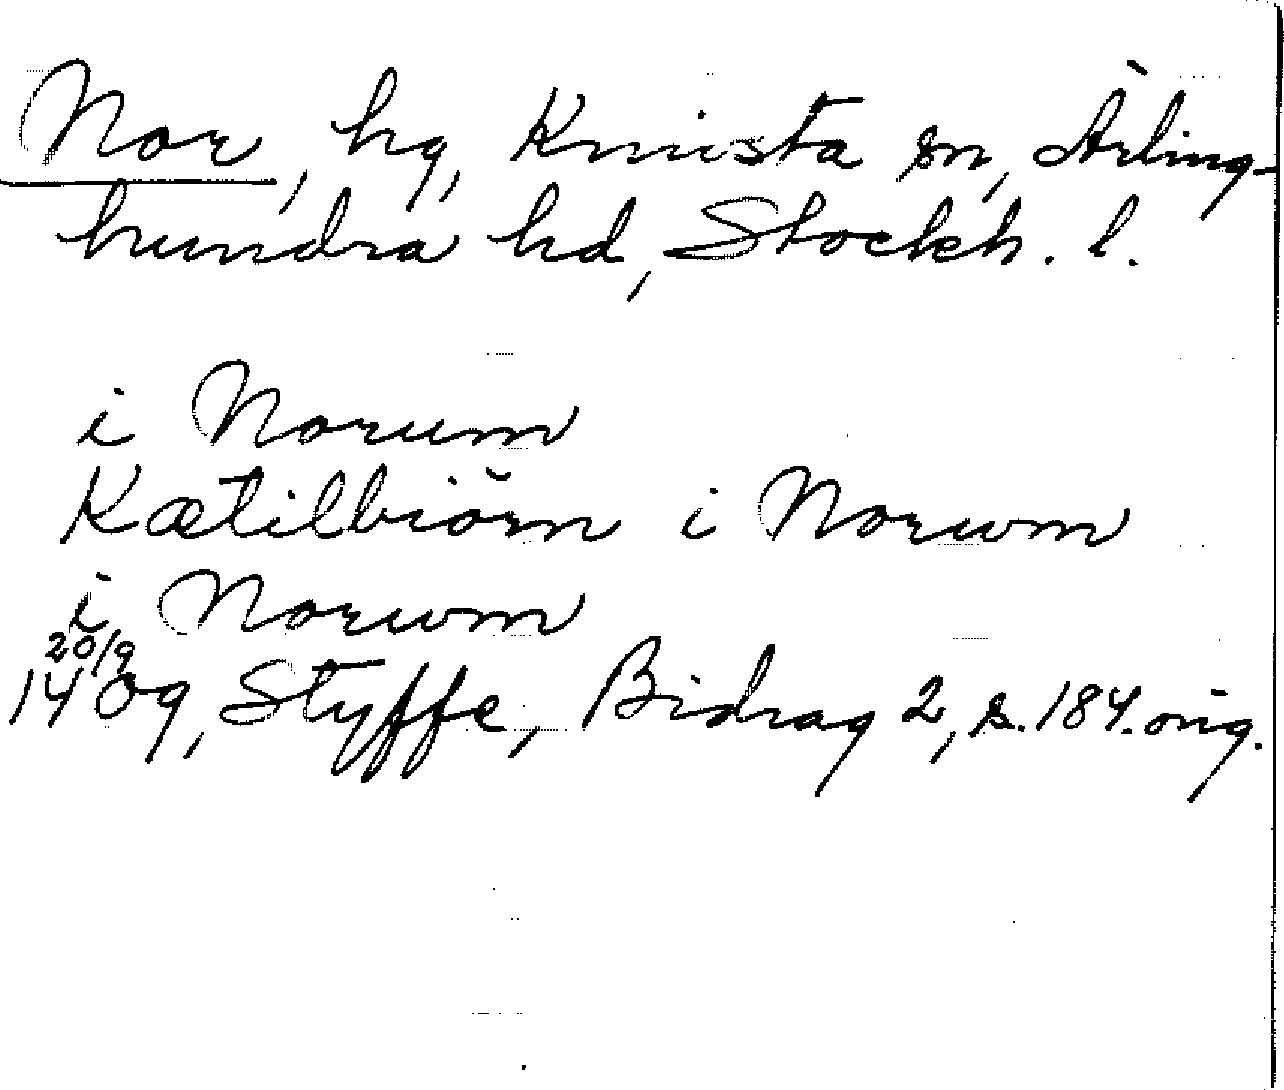 Nor, hg, Knivsta sn, Ärling-
hundra hd, Stockh. l.
i Norum
Kætilbiörn i Norwm
i Norwm
20/9
1409, Styffe, Bidrag 2, s. 184. orig.